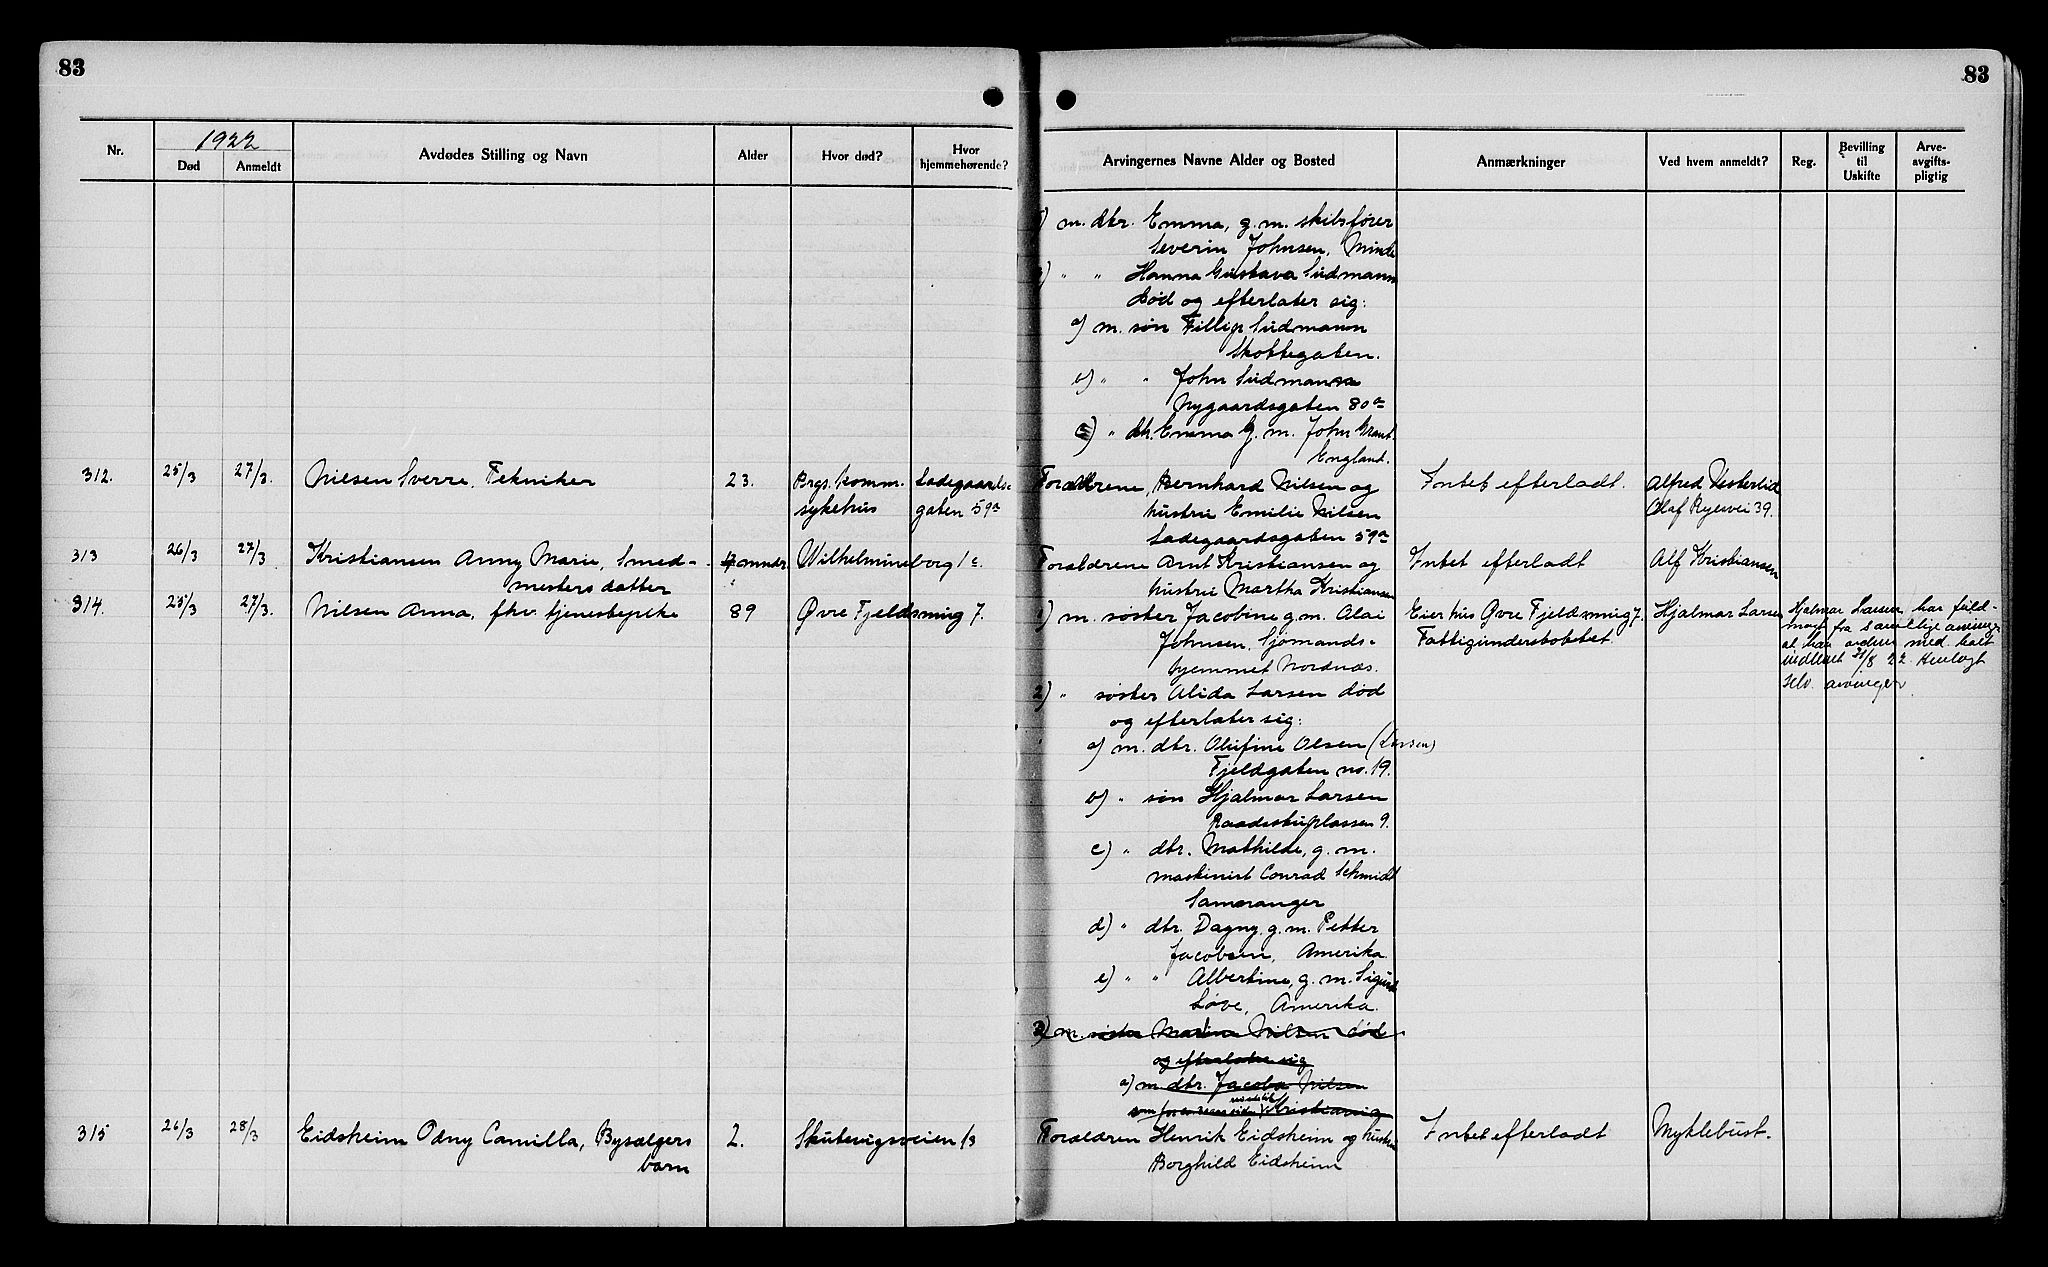 83
83
Nr.
1922
Død
Anmeldt
Avdødes Stilling og Navn
Alder
Hvor død?
Hvor hjemmehørende?
Arvingernes Navne Alder og Bosted
Anmærkninger
Ved hvem anmeldt?
Reg.
Bevilling til Uskifte
Arve-avgifts-pligtig
m. dtr. Emma, g. m. skibsfører
Severin Johnsen, Minde
" " Hanna Gustava Sudmann
død og efterlater sig:
a) m. søn Fillip Sudmann
Skottegaten.
b) " " John Sudmann
Nygaardsgaten 80 a
c) " dtr. Emma g. m. John Grant
England.
312. 25/3 27/3. Nilsen Sverre, Tekniker 23. Brgs. komm. Ladegaards- Forældrene, Bernhard Nilsen og Intet efterladt. Alfred Vesterlid
sykehus gaten 59a hustru Emilie Nilsen Olaf Ryesvei 39.
Ladegaardsgaten 59a
313 26/3 27/3. Kristiansen Anny Marie, Smed- 4 mndr. Wilhelmineborg 1c. Forældrene Arnt Kristiansen og Intet efterladt Alf Kristiansen
mesters datter hustru Martha Kristiansen
314. 25/3 27/3. Nilsen Anna, fhv. tjenestepike 89 Øvre Fjeldsmug 7. 1) m. søster Jacobine g. m. Olai Eier hus Øvre Fjeldsmug 7. Hjalmar Larsen Hjalmar Larsen har fuld-
Johnsen, Sjømands- Fattigunderstøttet. magt fra samtlige arvinger
hjemmet Nordnæs. at han ordner med
31/8 22. Henlagt
2) " søster Alida Larsen død selv. arvinger
og efterlater sig:
a) m. dtr. Olufine Olsen (Larsen)
Fjeldgaten no. 19.
b) " søn Hjalmar Larsen
Raadstuplassen 9.
c) " dtr. Mathilde, g. m.
maskinist Conrad Schmidt
Samnanger
d) " dtr. Dagny, g. m. Petter
Jacobsen, Amerika.
e) " " Albertine, g. m. Sigurd
Løve, Amerika.
3) m. søster Martine Nilsen død
og efterlater sig
a) m dtr. Jacoba Nilsen
Kristiania
315 26/3 28/3 Eidsheim Odny Camilla, Bysælgers 2. Skutevigsveien 13 Forældrene Henrik Eidsheim og hustru Intet efterladt Myklebust.
barn Borghild Eidsheim